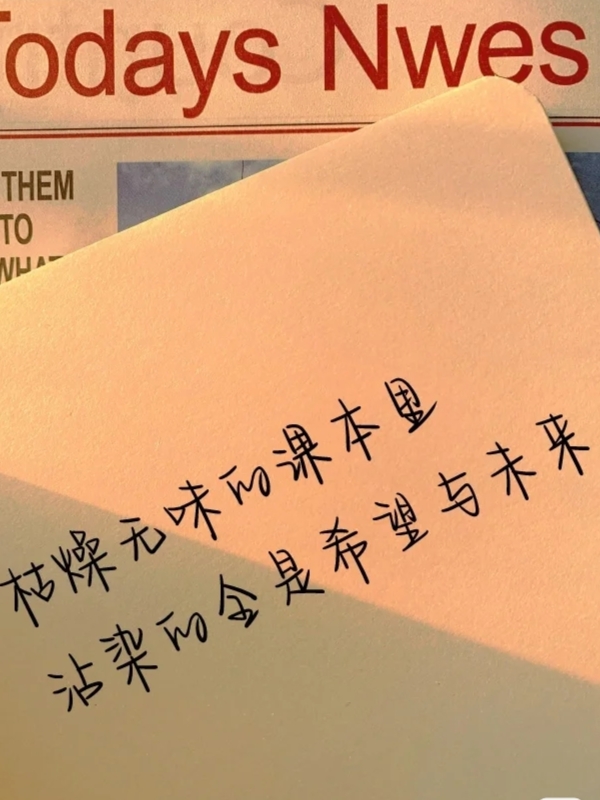 Todays Nwes
THEM
TO
枯燥无味的课本里
沾染的全是希望与未来